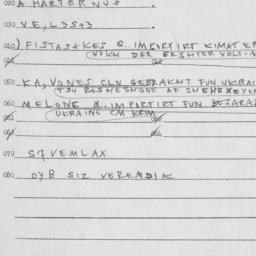 020 A HARTER NUS.
030 VE, L3S+3
040) FISTAŠ+KES &.. IMPORTIRT KIMAT ER
(NOKH DER ERSHTER VELT-M
050 KA, VONES CLN GEBRAKHT FUN UKRAI
(TSU ROSHESHONE AF SHEHEKEYON
060 MELONE &.. IMPORTIRT FUN BESARA
(UKRAINE CM KRIM
070 S7 VEMLAX
080 OYB SIZ VEREMDIK